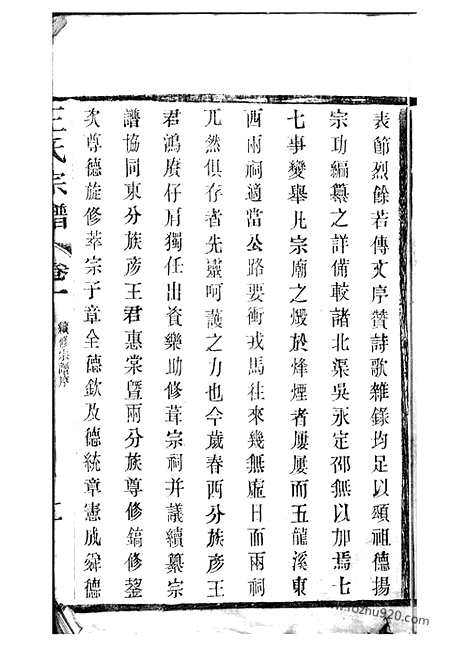 表節烈餘若傳文序贊詩歌雜錄均足以頌祖德揚
宗功編纂之詳備較諸北渠吳永定邵無以加焉七
七事變舉凡宗廟之燬於烽煙者屢屢而五龍溪東
西兩祠適當公路要衝戎馬往來幾無虛日而兩祠
兀然俱存者先靈呵護之力也今歲春西分族彥王
君鴻賡仔肩獨任出資樂助修葺宗祠并議續纂宗
譜協同東分族彥王君惠棠暨兩分族尊修鎬修鋆
次尊德旋修萃宗子章全德欽及德統章憲成鋒德
王氏宗譜
卷一
續修宗譜序
www.lozhu920.com